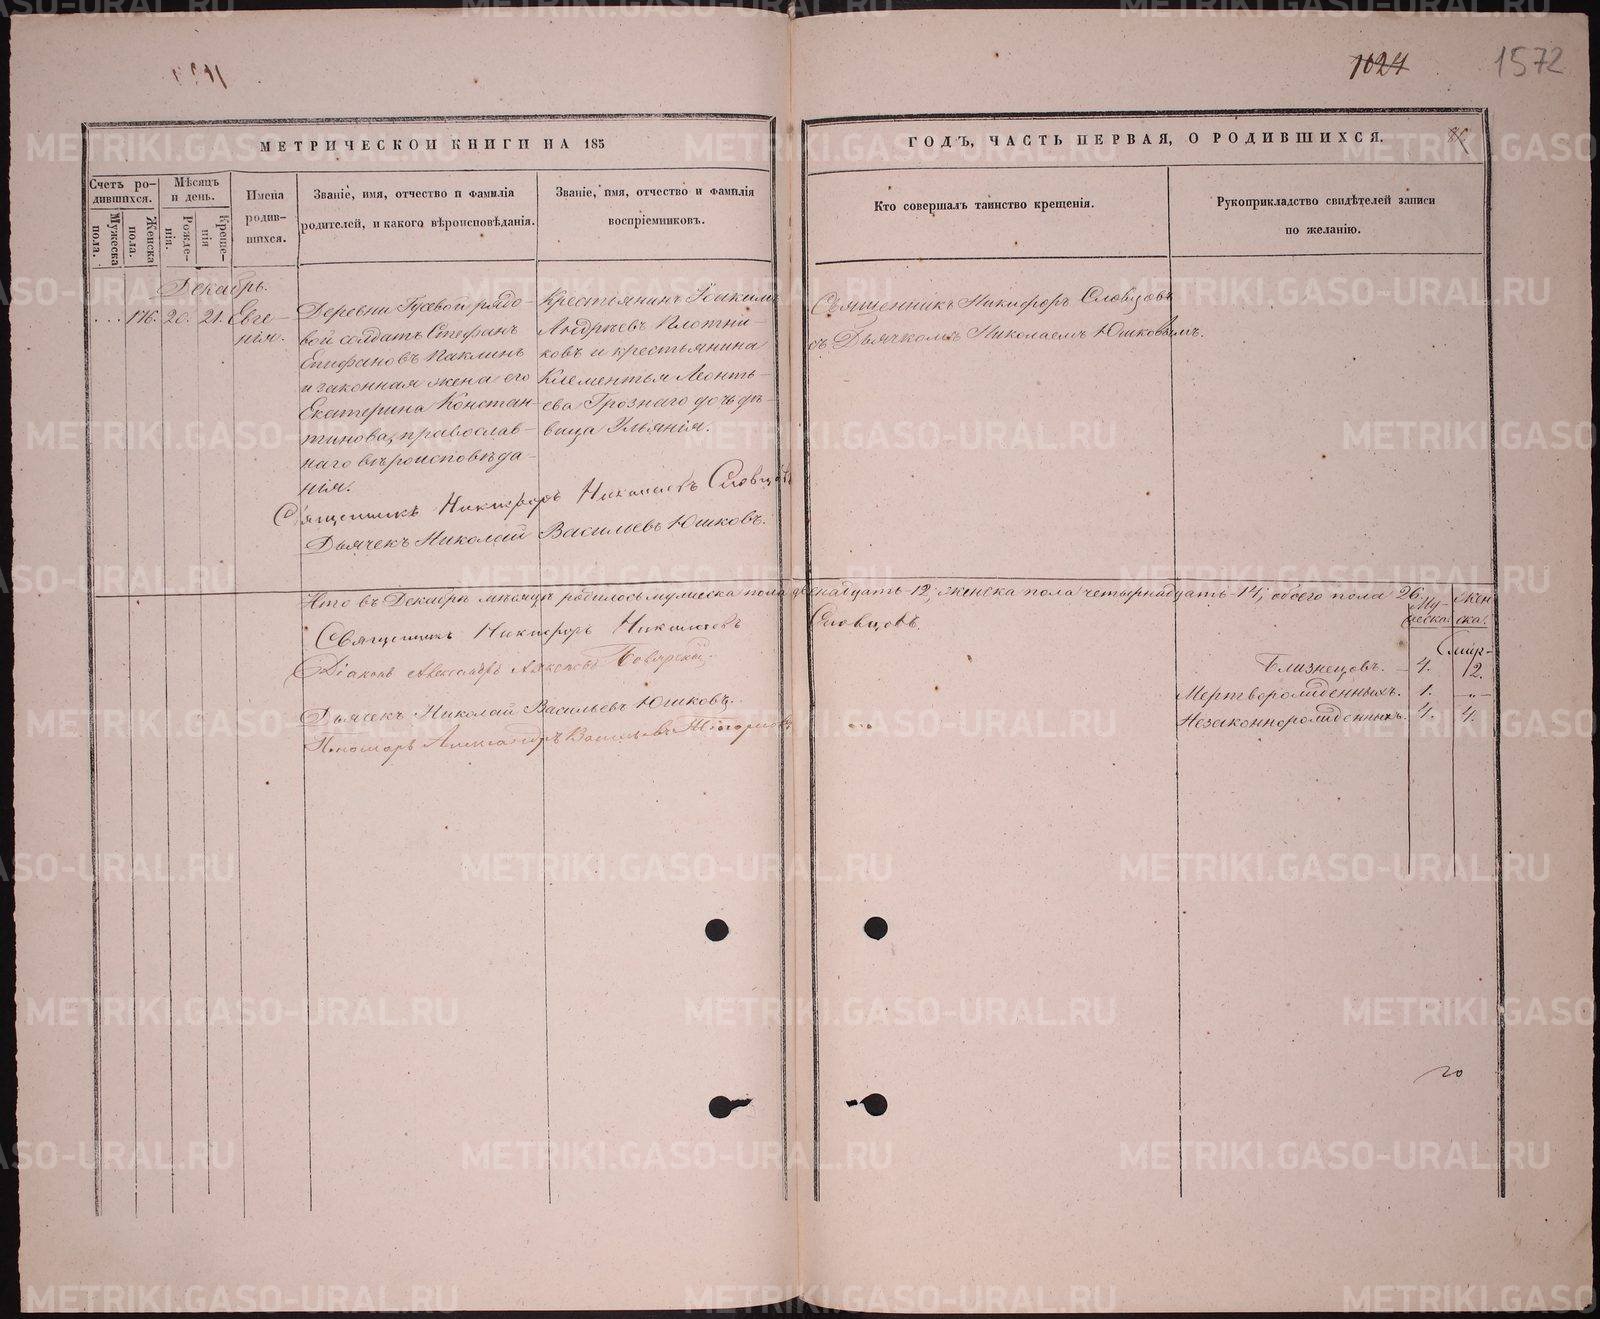 1024
1572
МЕТРИЧЕСКОЙ КНИГИ НА 185
ГОДЪ, ЧАСТЬ ПЕРВАЯ, О РОДИВШИХСЯ.
Счетъ ро-
дившихся.
Мужеска
пола.
Женска
пола.
Мѣсяцъ
и день.
Рожде-
нія.
Креще-
нія
Имена
родив-
шихся.
Званіе, имя, отчество и фамилія
родителей, и какого вѣроисповѣданія.
Званіе, имя, отчество и фамилія
воспріемниковъ.
Кто совершалъ таинство крещенія.
Рукоприкладство свидѣтелей записи
по желанію.
Декабрь.
176. 20. 21. Евге-
нія.
Деревни Гусевой рядо-
вой солдатъ Стефанъ
Епифановъ Паклинъ
и законная жена его
Екатерина Констан-
тинова, православ-
наго вѣроисповѣда-
нія.
Крестьянинъ Іоакимъ
Андрѣевъ Плотни-
ковъ и крестьянина
Клементья Леонть-
ева Грознаго дочь дѣ-
вица Ульянія.
Священникъ Никифоръ Словцовъ
съ Дьячкомъ Николаемъ Юшковымъ.
Священникъ Никифоръ Николаевъ Словцовъ
Дьячекъ Николай Васильевъ Юшковъ.
Что въ Декабрѣ мѣсяцѣ родилось мужеска пола двенадцать 12, женска пола четырнадцать 14, обоего пола 26.
Му-
жеска.
Жен
ска.
Священникъ Никифоръ Николаевъ Словцовъ.
Діаконъ Александръ Алексѣевъ
Дьячекъ Николай Васильевъ Юшковъ.
Пономарь Александръ Васильевъ
Близнецовъ. 4. 2.
Мертворожденныхъ. 1. -"-
Незаконнорожденныхъ. 4. 4.
METRIKI.GASO-URAL.RU